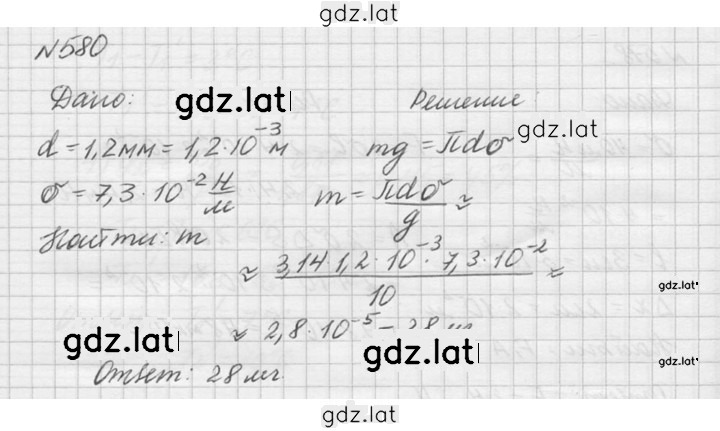 gdz.lat
N580
Дано: gdz.lat Решение:
d = 1,2 мм = 1,2·10⁻³ м mg = πdσ gdz.lat
σ = 7,3·10⁻² Н/м m = πdσ/g ≈
Найти: m
≈ 3,14·1,2·10⁻³·7,3·10⁻²/10 ≈
gdz.lat
≈ 2,8·10⁻⁵ = 28
gdz.lat gdz.lat gdz.lat
Ответ: 28 мг
gdz.lat